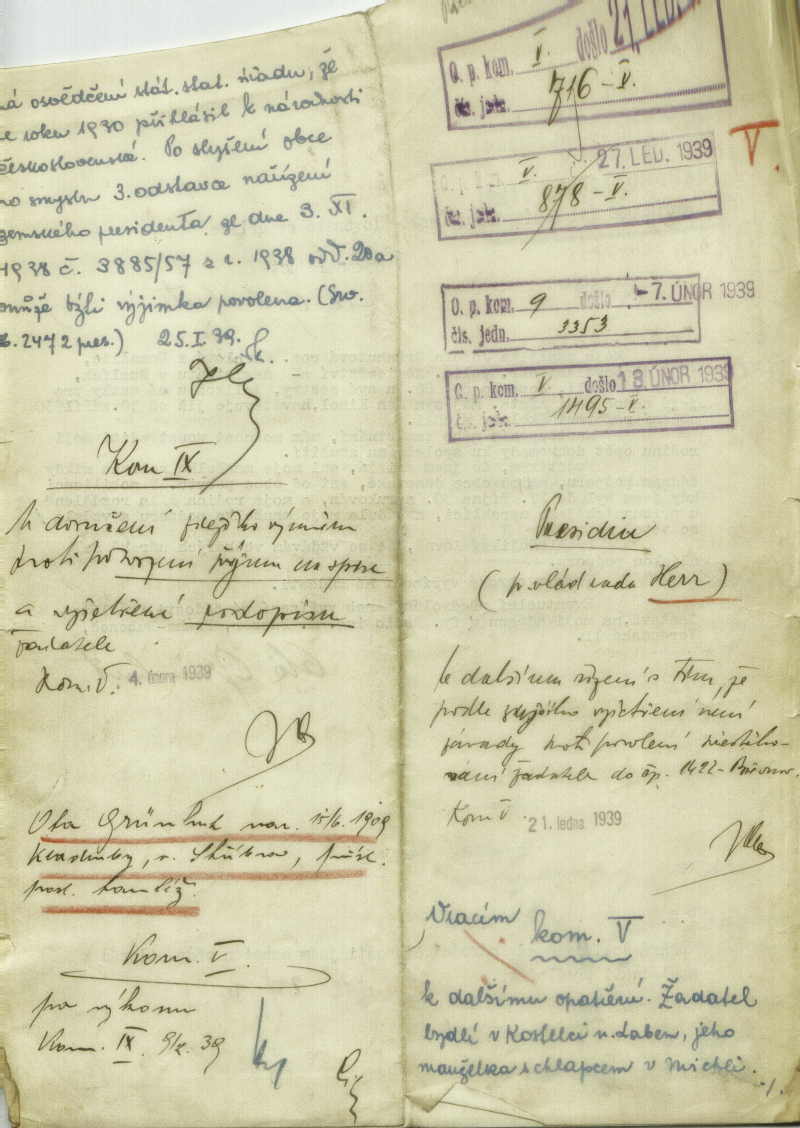 má osvědčení stát. stat. úřadu, že
se roku 1930 přihlásil k národnosti
československé. Po slyšení obce
ho smyslu 3. odstavce nařízení
zemského presidenta ze dne 3. XI.
1938 č. 3885/57 z r. 1938 odd. 20a
může býti výjimka povolena. (Srv.
2472 pres.) 25. I. 39.
Kom IX
K doručení
proti potvrzení na spise
a vyšetření podopisu
žadatele
Kom. V. 4. února 1939
Ota Grünhut nar. 1909
Kladruby, o.
přísl. tamtéž.
Kom. V.
po výkonu
Kom. IX. 39
O. p. kom. V. došlo 21. LED.
čís. jedn. 716 – V.
V.
V. 27. LED. 1939
čís. jedn. 878 – V.
O. p. kom. 9 došlo - 7. ÚNOR 1939
čís. jedn. 3353
O. p. kom. V. došlo 13. ÚNOR 1939
čís. jedn. 1495 – V.
Presidiu
(p. vlád. rada Herr)
k dalšímu řízení s tím, že
podle vyšetření není
závady proti povolení
žadatele do čp. 1422 -
Kom V. 21. ledna 1939
Vracím
kom. V
k dalšímu opatření. Žadatel
bydlí v Kostelci n. Labem, jeho
manželka s chlapcem v Michli.
./.